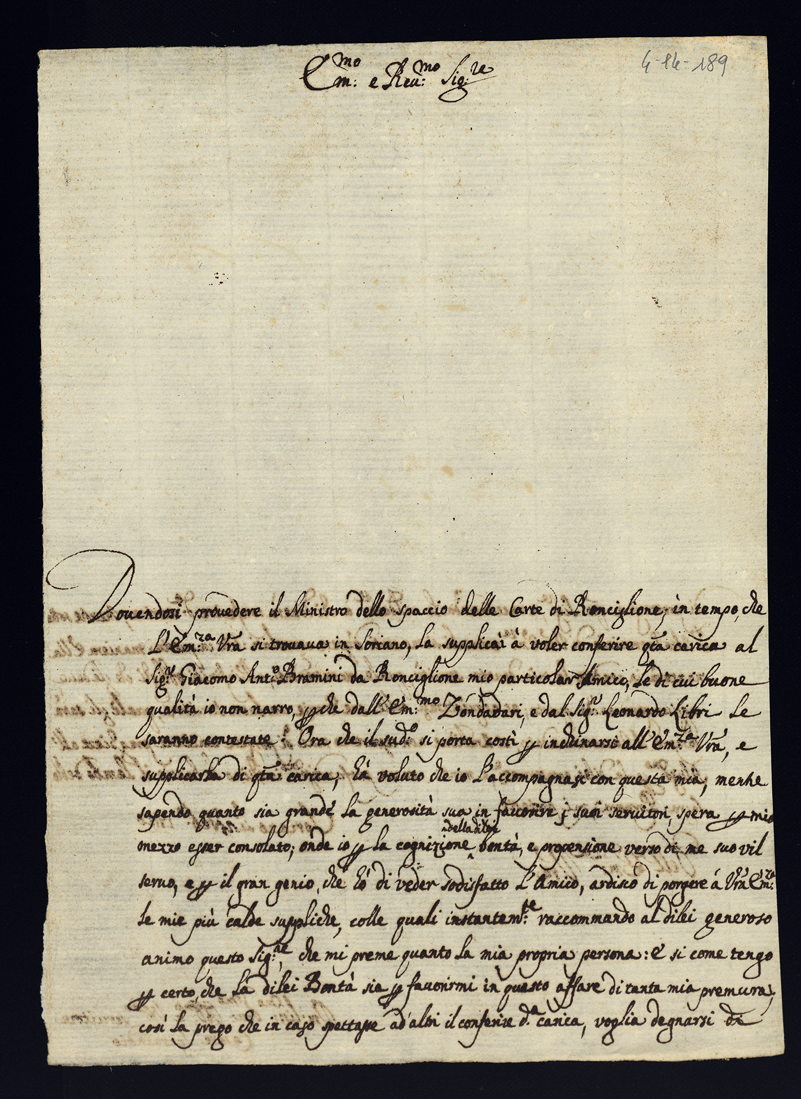 4-14-189
Em:mo e Reu:mo Sig:re
Douendosi prouedere il Ministro dello spaccio delle Carte di Ronciglione, in tempo, che
L'Em:za Vra si trouaua in Soriano, La supplicai à voler conferire qta carica al
Sig:r Giacomo Anto Bramini da Ronciglione mio particolar Amico, le di cui buone
qualità io non narro, p che dall'Em:mo Zondadari, e dal Sig:r Leonardo Libri Le
saranno contestate: Ora che il sudo si porta costi p inchinarsi all'Em:za Vra, e
supplicarla di qta carica, hà voluto che io L'accompagnassi con questa mia, menhe
sapendo quanto sia grande La generosità sua in fauorire i suoi seruitori, spera p mio
mezzo esser consolato; onde io p la cognizione della di lei bontà, e propensione verso di me suo vil
seruo, e p il gran genio, che hò di veder sodisfatto L'Amico, ardisco di porgere á Vra Em:za
le mie più calde suppliche, colle quali instantem:te raccommando al dilei generoso
animo questo Sig:re, che mi preme quanto la mia propria persona: e si come tengo
p certo, che la dilei Bontà sia p fauorirmi in questo affare di tanta mia premura,
così La prego che in caso spettasse ad altri il conferire da carica, voglia degnarsi di